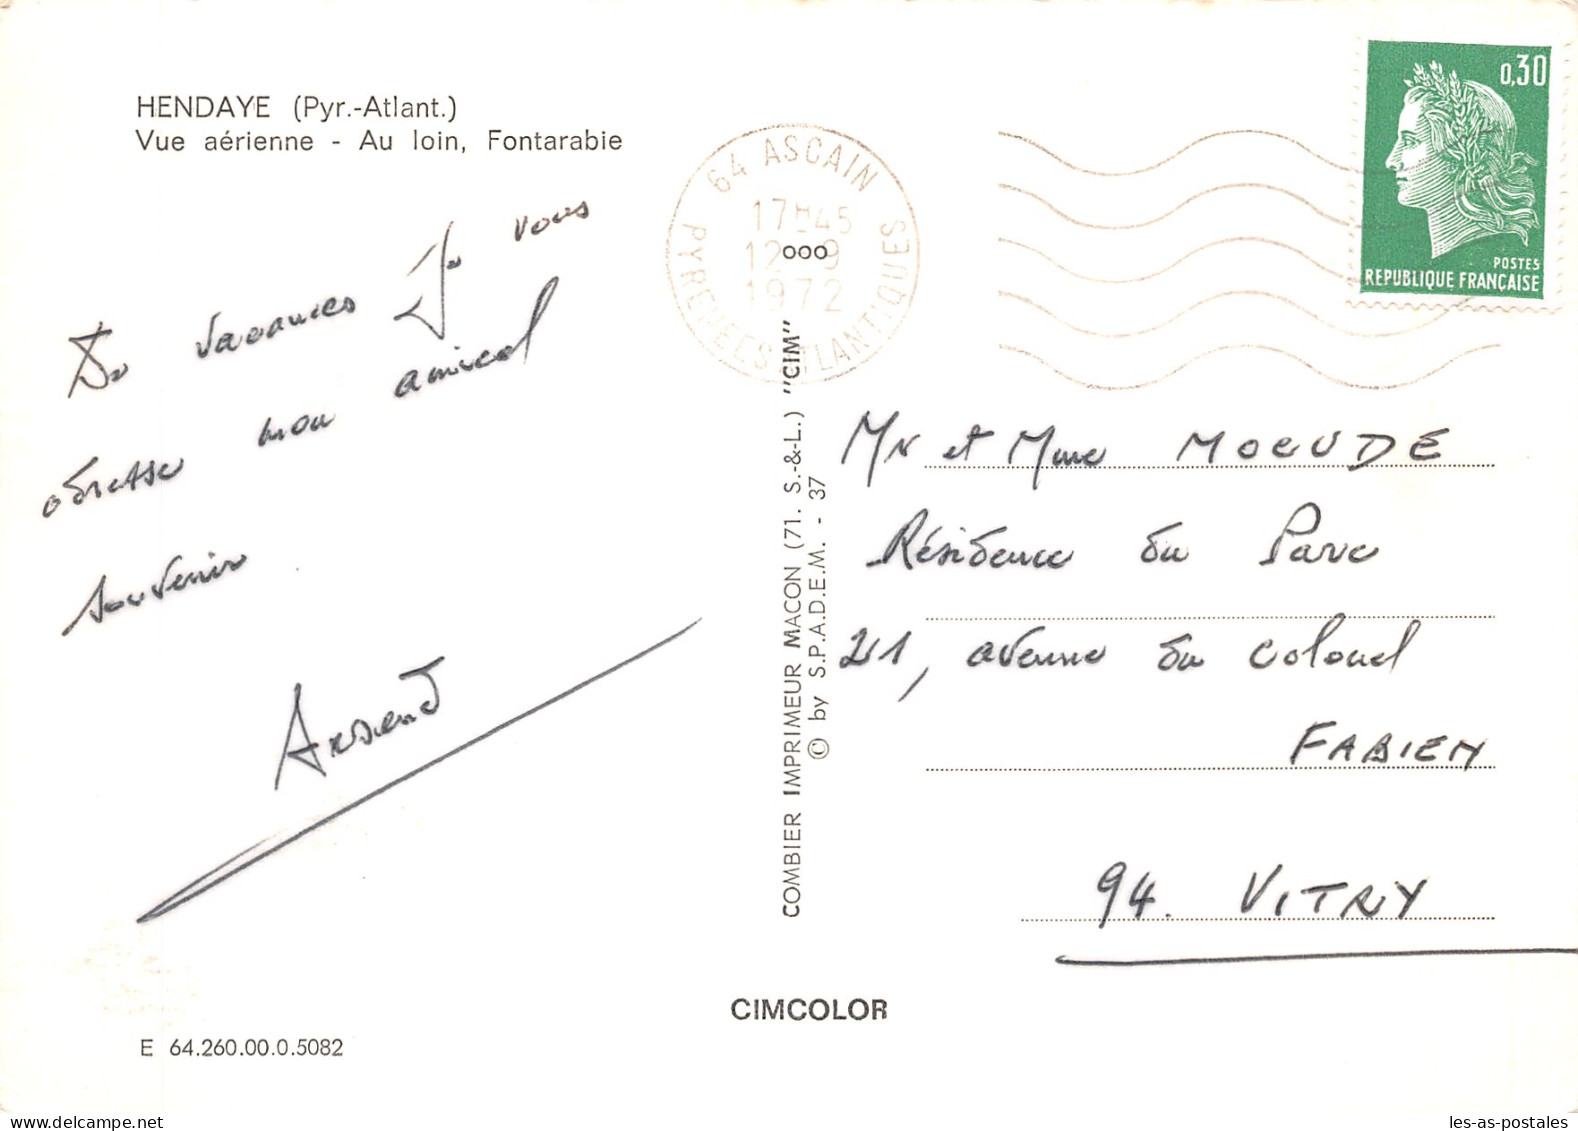 HENDAYE (Pyr.-Atlant.)
Vue aérienne - Au loin, Fontarabie
De vacances Je vous
adresse mon amical
souvenir
64 ASCAIN
17H45
12 - 9
1972
PYRENEES ATLANTIQUES
0,30
POSTES
REPUBLIQUE FRANÇAISE
ooo
COMBIER IMPRIMEUR MACON (71. S.-&-L.) "CIM"
© by S.P.A.D.E.M. - 37
Mr et Mme
Résidence du Parc
21, avenue du Colonel
FABIEN
94. VITRY
CIMCOLOR
E 64.260.00.0.5082
delcampe.net
les-as-postales